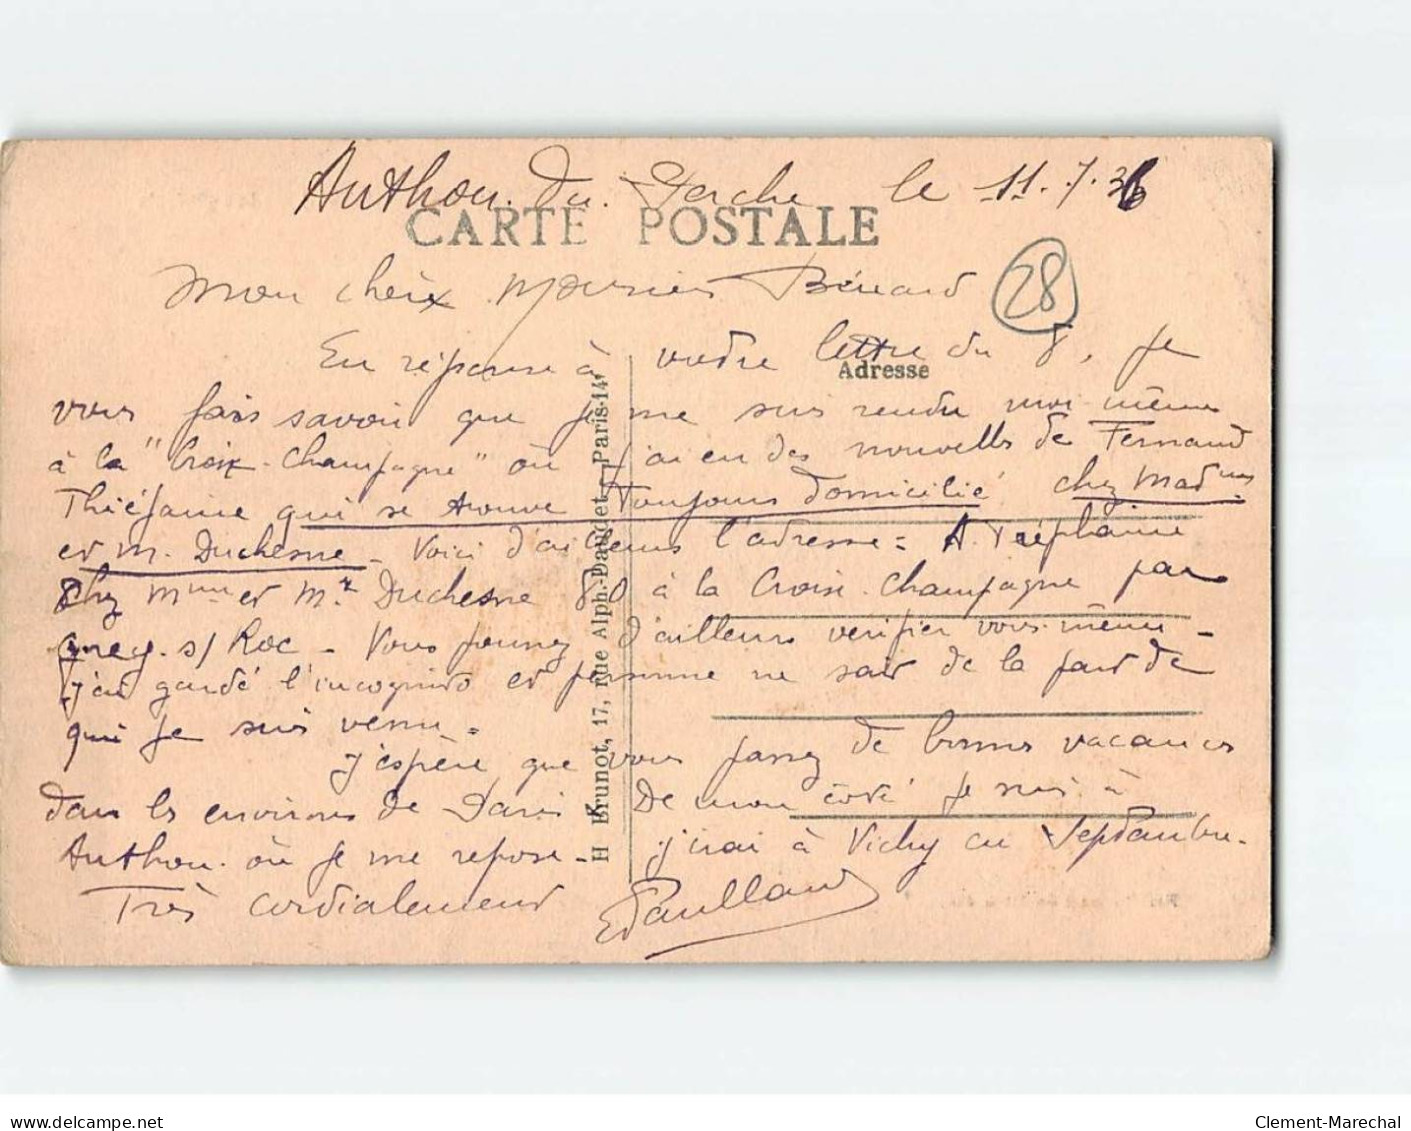 Authon. du. Perche le 11.7.36
CARTE POSTALE
Mon cher Monsieur Bénard
28
En réponse à votre lettre du 8, je
Adresse
vous fais savoir que je me suis rendu moi-même
à la "Croix-Champagne" où j'ai eu des nouvelles de Fernand
Thiéfaine qui se trouve toujours domicilié chez Madame
et M. Duchesne - Voici d'ailleurs l'adresse = A. Tréphaine
chez Mme et Mr Duchesne 80 à la Croix-Champagne par
s/ Roc - Vous pouvez d'ailleurs vérifier vous-même -
j'ai gardé l'incognito et personne ne sait de la part de
qui je suis venu =
j'espère que vous passez de bonnes vacances
dans les environs de Paris De mon côté je suis à
Authon. où je me repose - j'irai à Vichy en Septembre.
Très cordialement
H Brunot, 17, rue Alph.-Daudet - Paris-14e
Clement-Marechal